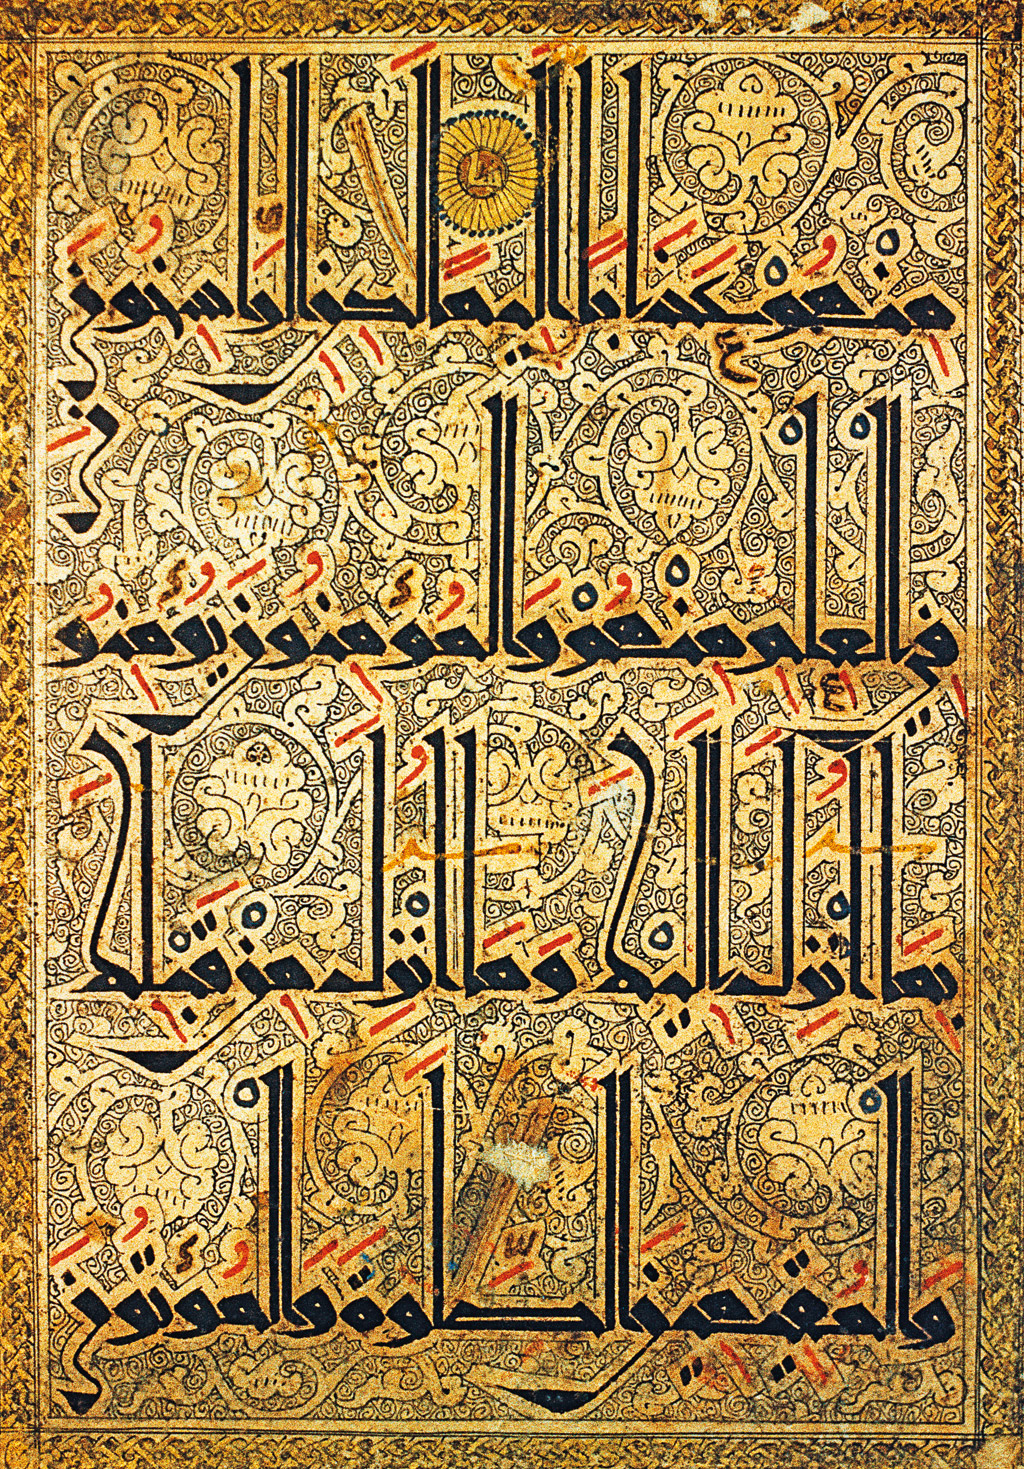 منهم عذابا اليما لكن الرسخون
في العلم منهم والمؤمنون يؤمنون
بما انزل اليك وما انزل من قبلك
والمقيمين الصلوة والموتون